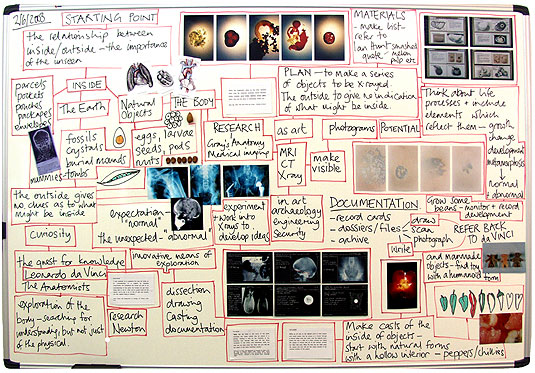 2/6/2003
STARTING POINT
the relationship between
inside/outside - the importance
of the unseen
MATERIALS
- make list -
refer to
Ian Hunt smashed
quote melon
pulp etc
PLAN - to make a series
of objects to be X-rayed.
The outside to give no indication
of what might be inside.
parcels
pockets
pouches
packages
envelopes
INSIDE
The Earth
Natural
Objects
THE BODY
fossils
crystals
burial mounds
tombs
mummies
eggs, larvae
seeds, pods
nuts
RESEARCH
Gray's Anatomy
Medical imaging
as art
photograms
POTENTIAL
MRI
CT
X-ray
make
visible
Think about life
processes + include
elements which
reflect them - growth
change
development
metamorphosis
normal
+ abnormal
the outside gives
no clues as to what
might be inside
Curiosity
expectation -
normal
the unexpected - abnormal
experiment
+ work into
X-rays to
develop ideas
in art
archaeology
engineering
Security
DOCUMENTATION
- record cards
- dossiers/files
- archive
draw
scan
photograph
write
Grow some
beans - monitor + record
development
REFER BACK
to da VINCI
the quest for knowledge
Leonardo da Vinci
The Anatomists
innovative means of
exploration
exploration of the
body - searching for
understanding, but not just
of the physical.
research
Newton
dissection
drawing
Casting
documentation
and manmade
objects - find toy
with a humanoid form
Make casts of the
inside of objects -
start with natural forms
with a hollow interior - peppers/chillies